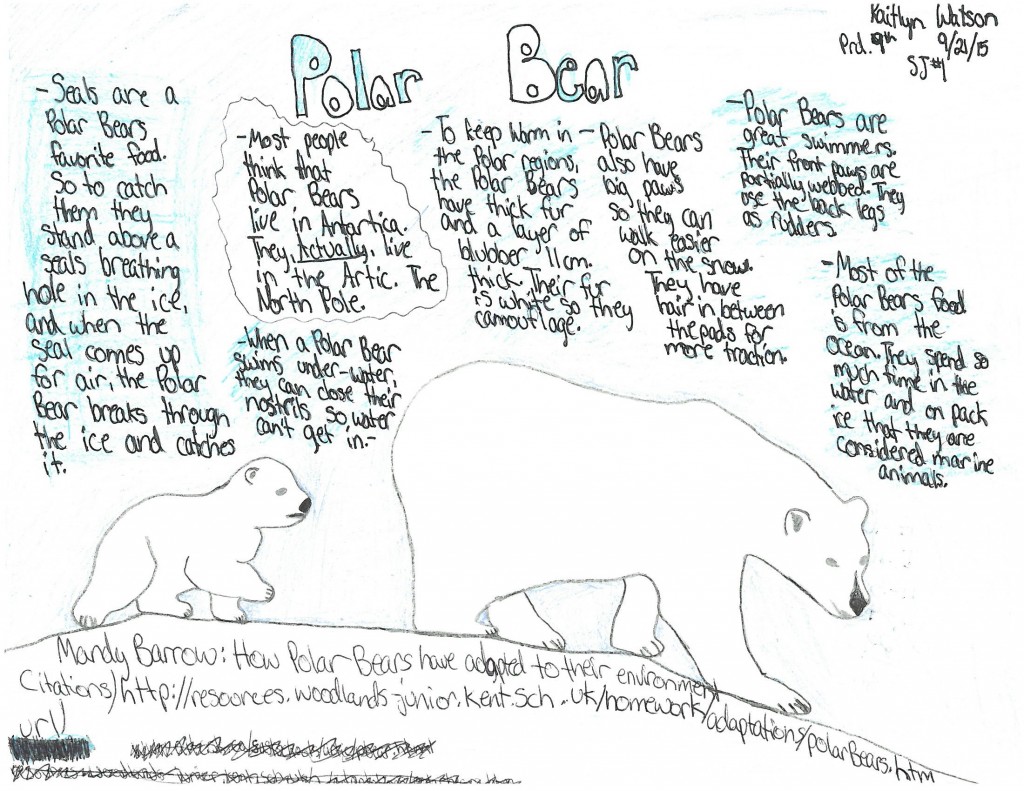 Kaitlyn Watson
Prd. 9th 9/21/15
SJ #1
Polar Bear
-Seals are a
Polar Bears
favorite food.
So to catch
them they
stand above a
seals breathing
hole in the ice,
and when the
seal comes up
for air, the Polar
Bear breaks through
the ice and catches
it.
-Most people
think that
Polar Bears
live in Antartica.
They, Actually, live
in the Artic. The
North Pole.
-When a Polar Bear
swims under-water,
they can close their
nostrils so water
can't get in.-
-To keep warm in
the Polar regions,
the Polar Bears
have thick fur
and a layer of
blubber 11cm.
thick. Their fur
is white so they
camouflage.
-Polar Bears
also have
big paws
so they can
walk easier
on the snow.
They have
hair in between
the pads for
more traction.
-Polar Bears are
great swimmers.
Their front paws are
partially webbed. They
use the back legs
as rudders
-Most of the
Polar Bears food
is from the
ocean. They spend so
much time in the
water and on pack
ice that they are
considered marine
animals.
Mandy Barrow: How Polar Bears have adapted to their environment
Citations/http://resources.woodlands-junior.kent.sch.uk/homework/adaptations/polarBears.htm
url/